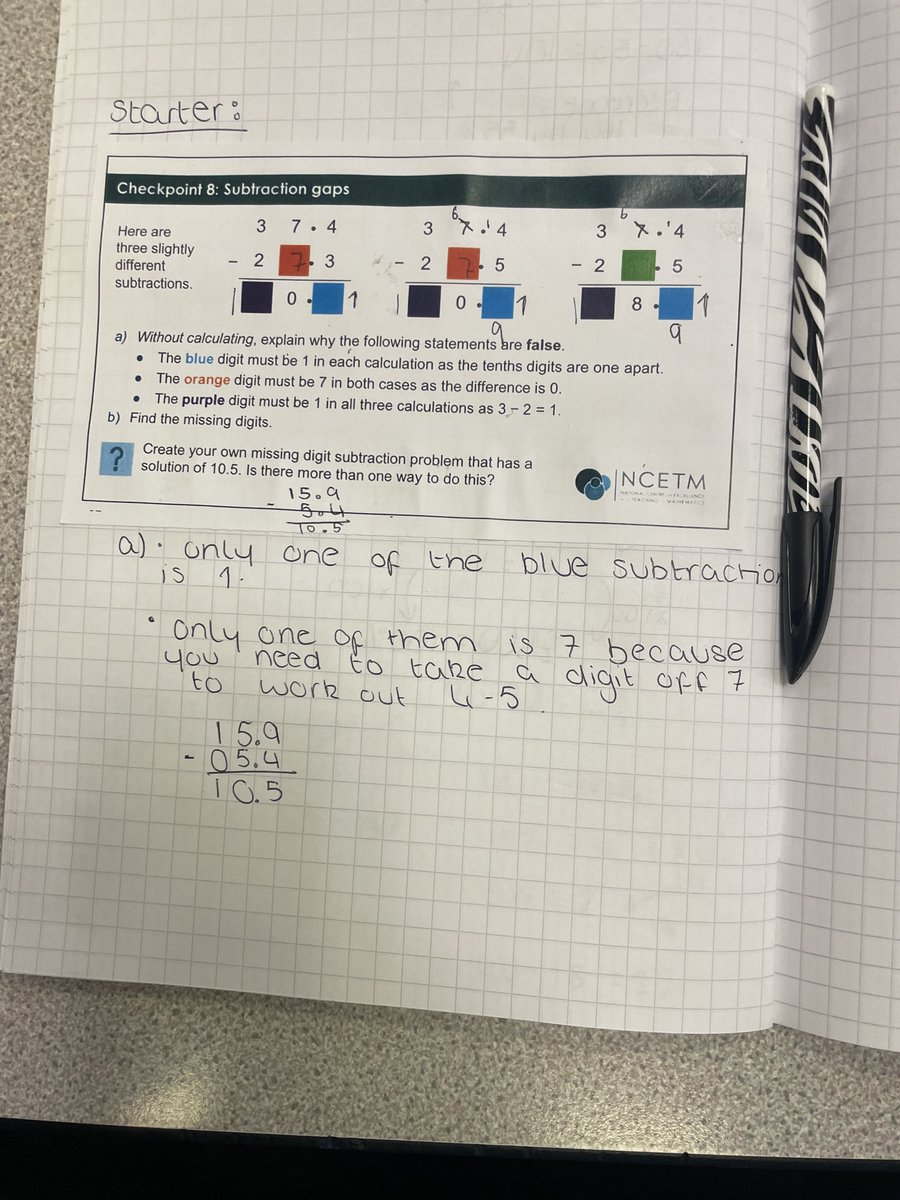 Starter:
Checkpoint 8: Subtraction gaps
Here are
three slightly
different
subtractions.
3 7 . 4
- 2 7 . 3
1 0 . 1
6
3 7 . 1 4
- 2 7 . 5
1 0 . 1
9
6
3 7 . 1 4
- 2 . 5
1 8 . 1
9
a) Without calculating, explain why the following statements are false.
• The blue digit must be 1 in each calculation as the tenths digits are one apart.
• The orange digit must be 7 in both cases as the difference is 0.
• The purple digit must be 1 in all three calculations as 3 – 2 = 1.
b) Find the missing digits.
? Create your own missing digit subtraction problem that has a
solution of 10.5. Is there more than one way to do this?
NCETM
15.9
- 5.4
10.5
a) • only one of the blue subtraction
is 1.
• only one of them is 7 because
you need to take a digit off 7
to work out 4-5
15.9
- 05.4
10.5